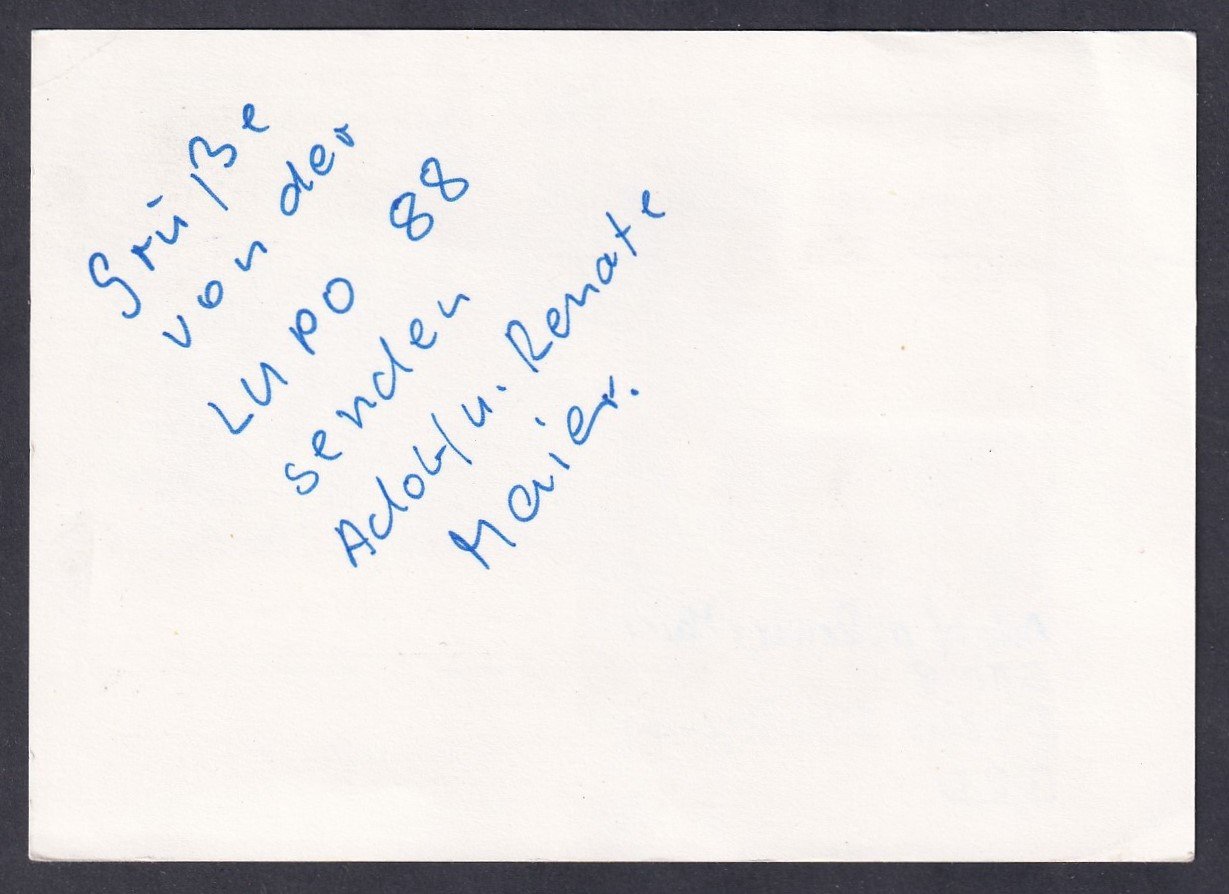 Grüße
von der
LUPO 88
senden
Adolf u. Renate
Maier.